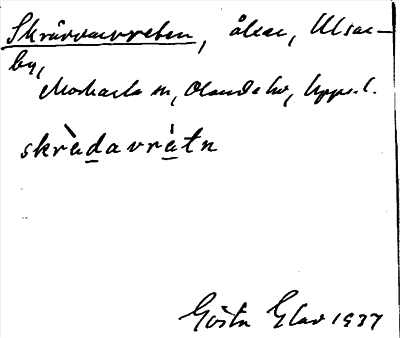 Skrävvarreten, åker, Ulsae-
by,
Morkarla sn, Olands hd, Uppl.
skrädavrätn
Gösta Elav 1937